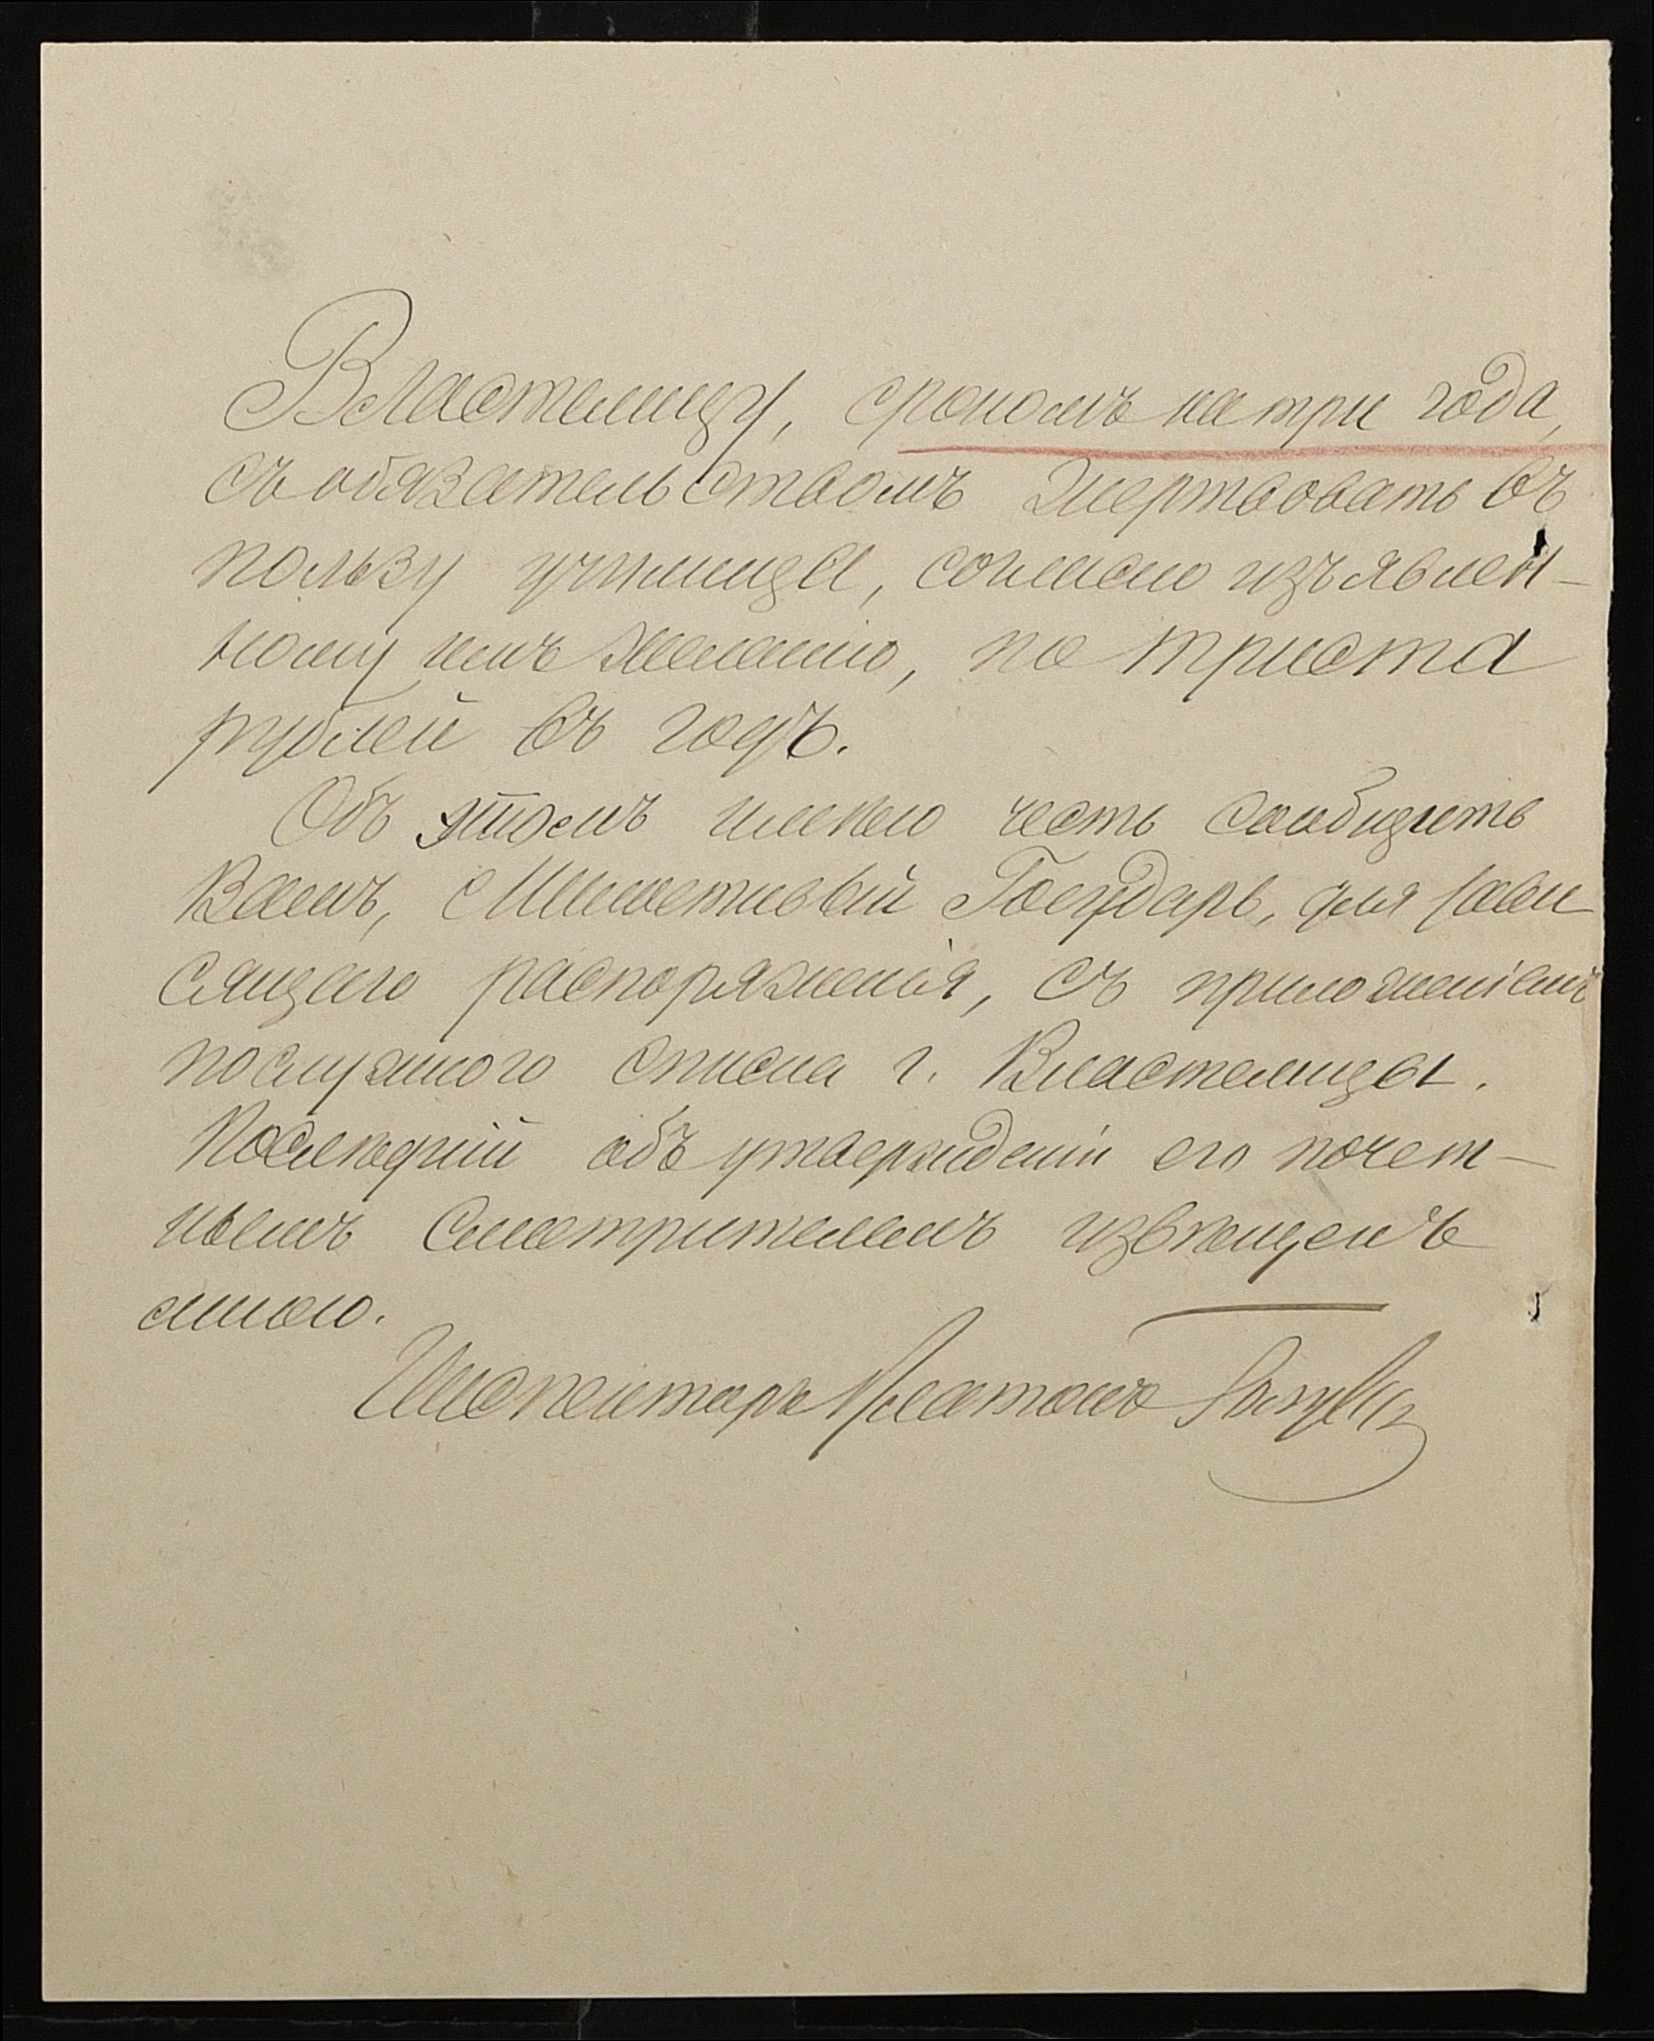 Властелицу, срокомъ на три года,
съ обязательствомъ жертвовать въ
пользу училища, согласно изъявлен-
ному имъ желанію, по триста
рублей въ годъ.
Объ этомъ имѣю честь сообщить
Вамъ, Милостивый Государь, для зави
сящаго распоряженія, съ приложеніемъ
послужного списка г. Властелицы.
Послѣдній объ утвержденіи его почет-
нымъ смотрителемъ извѣщенъ
мною.
Инспекторъ Платонъ